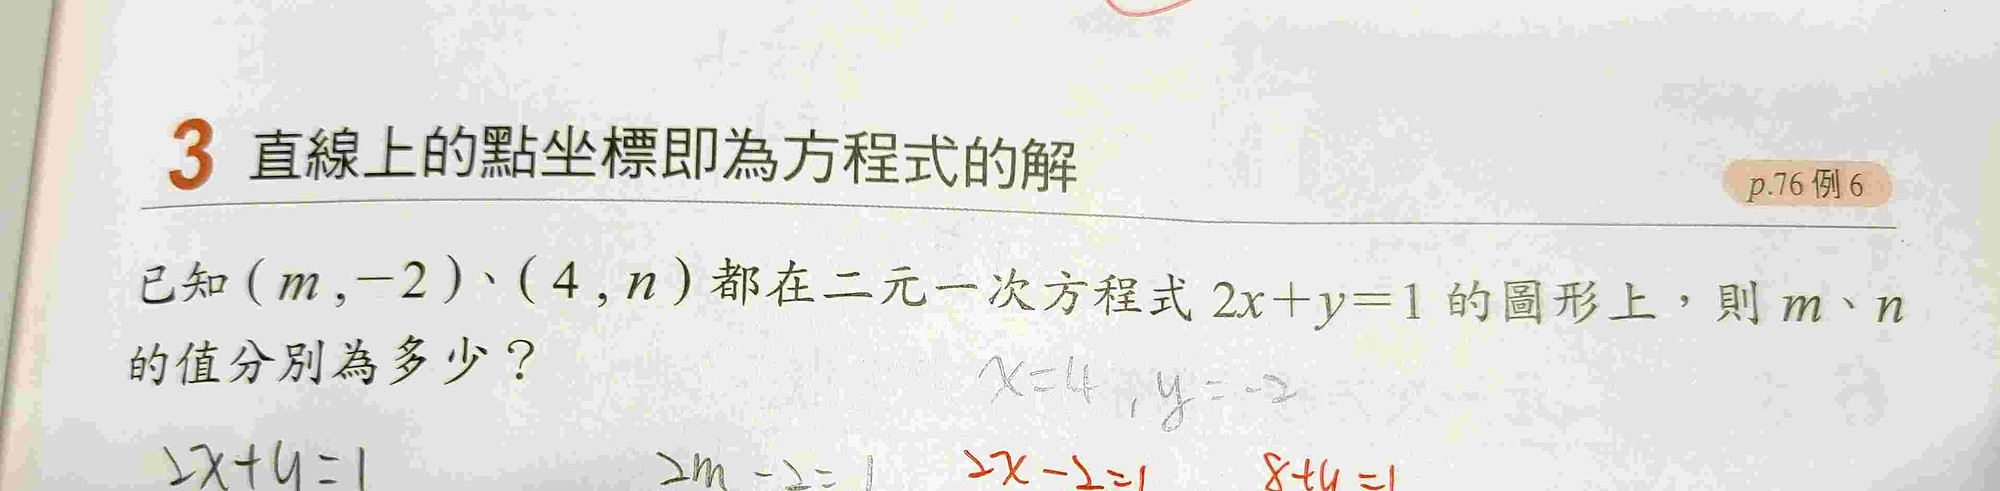 3 直線上的點坐標即為方程式的解
p.76 例 6
已知(m,-2)、(4,n)都在二元一次方程式 2x+y=1 的圖形上,則 m、n
的值分別為多少?
x=4, y=-2
2x+y=1 2m-2=1 2x-2=1 8+y=1